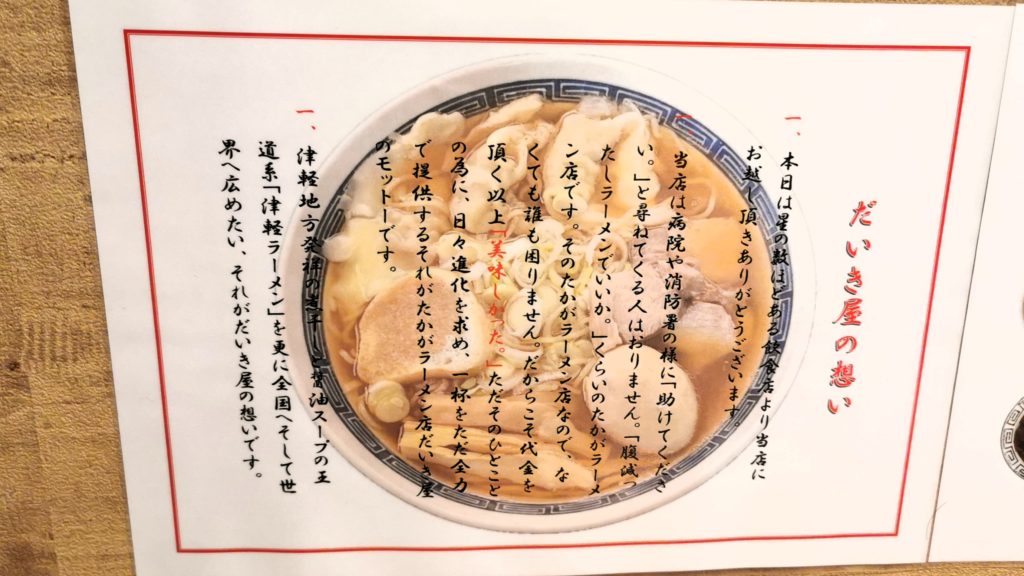 だいき屋の想い
一、本日は星の数ほどある飲食店より当店に
お越し頂きありがとうございます。
一、当店は病院や消防署の様に「助けてくださ
い。」と尋ねてくる人はおりません。「腹減っ
たしラーメンでいいか。」くらいのたかがラーメ
ン店です。そのたかがラーメン店なので、な
くても誰も困りません。だからこそ代金を
頂く以上「美味しかった。」ただそのひとこと
の為に、日々進化を求め、一杯をただ全力
で提供するそれがたかがラーメン店だいき屋
のモットーです。
一、津軽地方発祥の煮干し醤油スープの王
道系「津軽ラーメン」を更に全国へそして世
界へ広めたい、それがだいき屋の想いです。